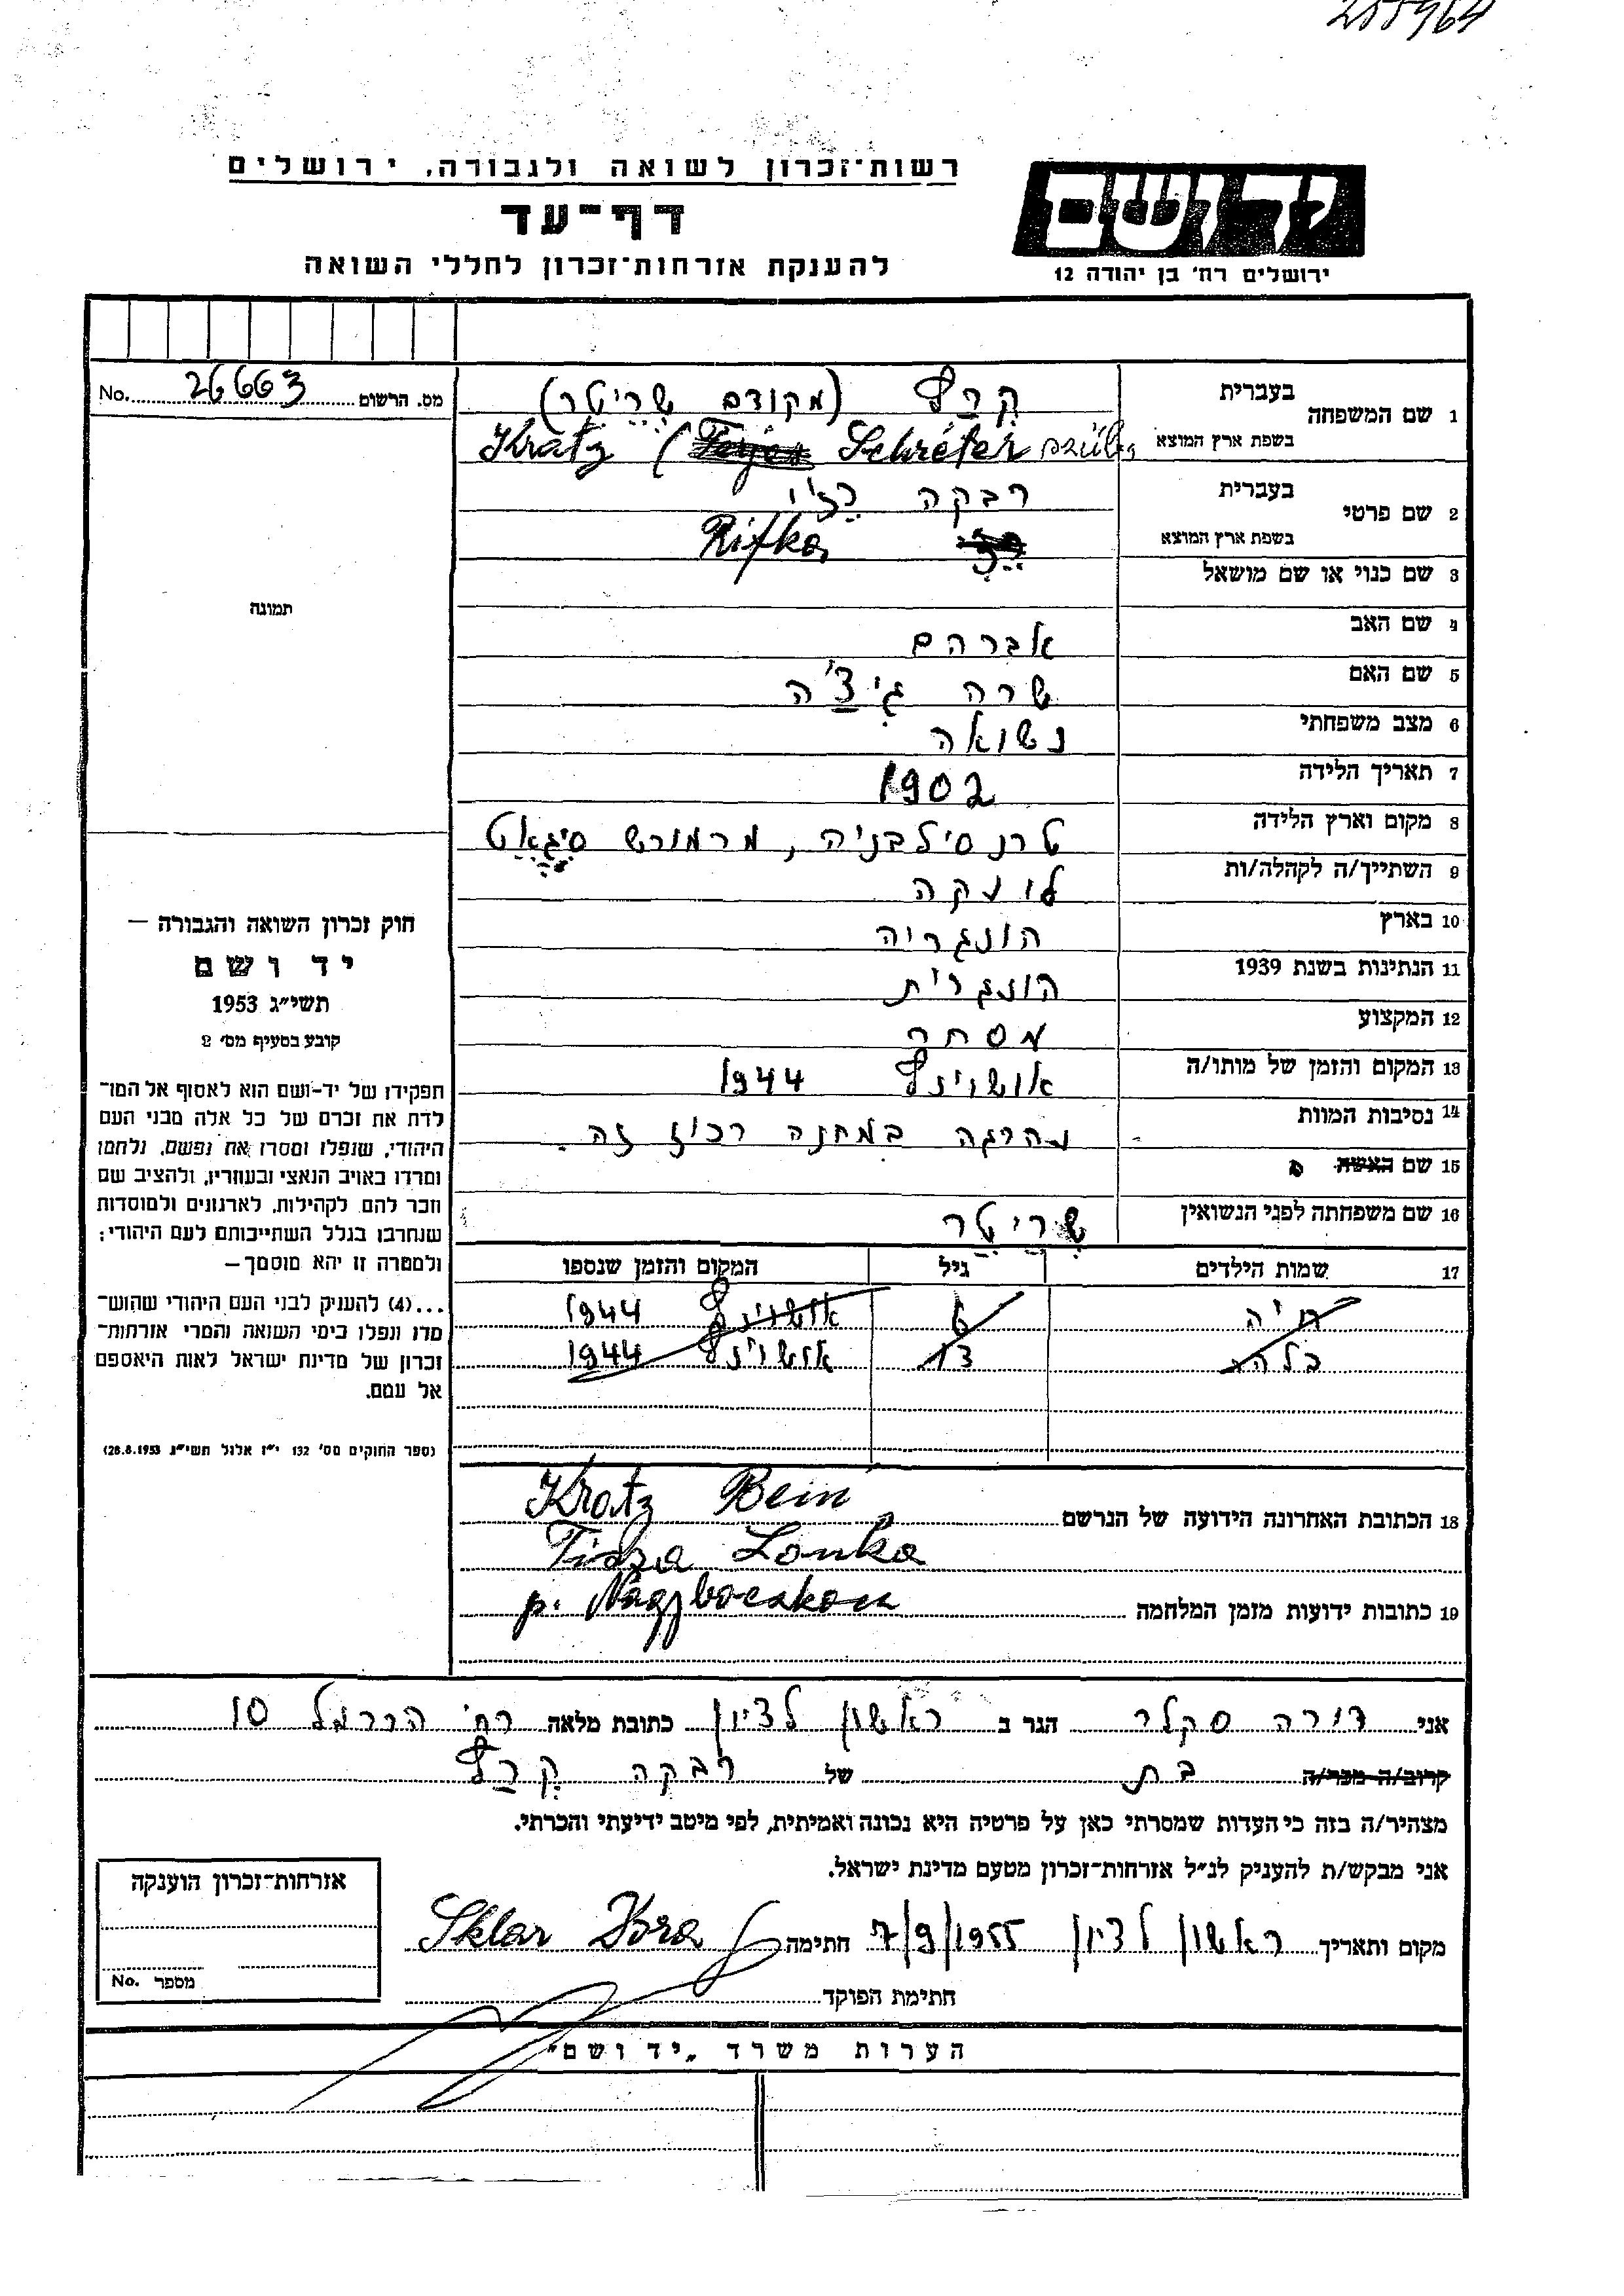 255964
רשות־זכרון לשואה ולגבורה, ירושלים
דף־עד
להענקת אזרחות־זכרון לחללי השואה
ידושם
ירושלים רח׳ בן יהודה 12
מס. הרשום No. 26663
1 שם המשפחה בעברית קרץ (מקודם שריטר)
בשפת ארץ המוצא Kratz ( Schréter szül.
2 שם פרטי בעברית רבקה רצ׳י
בשפת ארץ המוצא Rifka
3 שם כנוי או שם מושאל
תמונה
4 שם האב אברהם
5 שם האם שרה גיצ׳ה
6 מצב משפחתי נשואה
7 תאריך הלידה 1902
8 מקום וארץ הלידה טרנסילבניה, מרמורש סיגאט
9 השתייך/ה לקהלה/ות לונקה
10 בארץ הונגריה
11 הנתינות בשנת 1939 הונגרית
12 המקצוע מסחר
13 המקום והזמן של מותו/ה אושויץ 1944
14 נסיבות המוות נהרגה במחנה רכוז זה.
15 שם האשה
16 שם משפחתה לפני הנשואין שריטר
17 שמות הילדים גיל המקום והזמן שנספו
חיה 6 אושויץ 1944
בלהה 13 אושויץ 1944
חוק זכרון השואה והגבורה —
יד ושם
תשי״ג 1953
קובע בסעיף מס׳ 2
תפקידו של יד-ושם הוא לאסוף אל המו־
לדת את זכרם של כל אלה מבני העם
היהודי, שנפלו ומסרו את נפשם, נלחמו
ומרדו באויב הנאצי ובעוזריו, ולהציב שם
וזכר להם לקהילות, לארגונים ולמוסדות
שנחרבו בגלל השתייכותם לעם היהודי;
ולמטרה זו יהא מוסמך —
...(4) להעניק לבני העם היהודי שהוש־
מדו ונפלו בימי השואה והמרי אזרחות־
זכרון של מדינת ישראל לאות היאספם
אל עמם.
(ספר החוקים מס׳ 132 י״ז אלול תשי״ג 28.8.1953)
18 הכתובת האחרונה הידועה של הנרשם Kratz Bein
Tisza Lonka
19 כתובות ידועות מזמן המלחמה p. Nagybocskou
אני דורה סקלר הגר ב ראשון לציון כתובת מלאה רח׳ הכרמל 10
קרוב/ה מכר/ה בת של רבקה קרץ
מצהיר/ה בזה כי העדות שמסרתי כאן על פרטיה היא נכונה ואמיתית, לפי מיטב ידיעתי והכרתי.
אני מבקש/ת להעניק לנ״ל אזרחות־זכרון מטעם מדינת ישראל.
מקום ותאריך ראשון לציון 7/9/1955 חתימה Sklar Dora
חתימת הפוקד
אזרחות־זכרון הוענקה
מספר No.
הערות משרד „יד ושם״